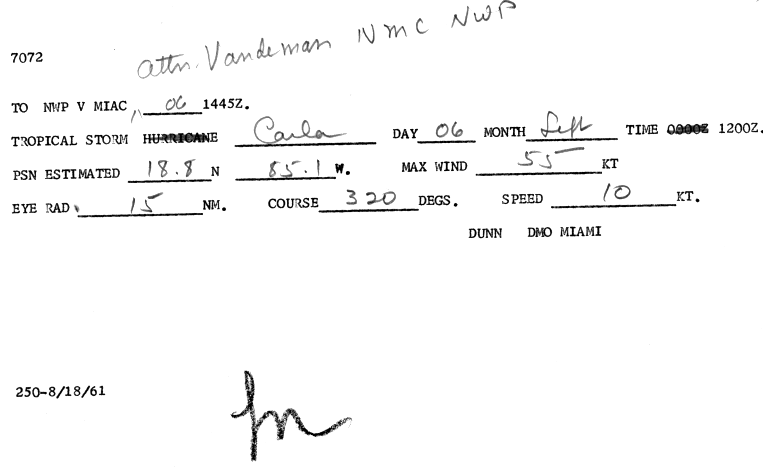 attn. Vandeman NMC NWP
7072
TO NWP V MIAC, 06 1445Z.
TROPICAL STORM HURRICANE Carla DAY 06 MONTH Sept TIME 0000Z 1200Z.
PSN ESTIMATED 18.8 N 85.1 W. MAX WIND 55 KT
EYE RAD. 15 NM. COURSE 320 DEGS. SPEED 10 KT.
DUNN DMO MIAMI
250-8/18/61